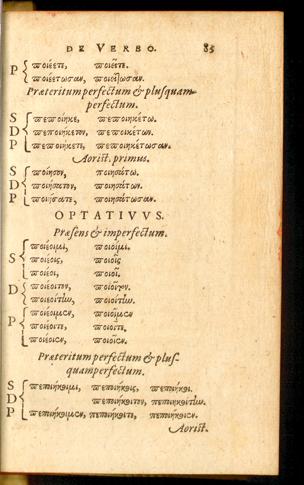 DE VERBO. 85
P ποιέετε, ποιεῖτε.
ποιεέτωσαν, ποιείτωσαν.
Præteritum perfectum & plusquam-
perfectum.
S πεποίηκε, πεποιηκέτω.
D πεποιήκετον, πεποιηκέτων.
P πεποιήκετε, πεποιηκέτωσαν.
Aorist. primus.
S ποίησον, ποιησάτω.
D ποιήσατον, ποιησάτων.
P ποιήσατε, ποιησάτωσαν.
OPTATIVVS.
Præsens & imperfectum.
ποιέοιμι, ποιοῖμι.
S ποιέοις, ποιοῖς
ποιέοι, ποιοῖ.
D ποιέοιτον, ποιοῖτον.
ποιεοίτην, ποιοίτην.
ποιέοιμεν, ποιοῖμεν
P ποιέοιτε, ποιοῖτε,
ποιέοιεν, ποιοῖεν.
Præteritum perfectum & plus-
quamperfectum.
S πεποιήκοιμι, πεποιήκοις, πεποιήκοι.
D πεποιήκοιτον, πεποιηκοίτην.
P πεποιήκοιμεν, πεποιήκοιτε, πεποιήκοιεν.
Aorist.